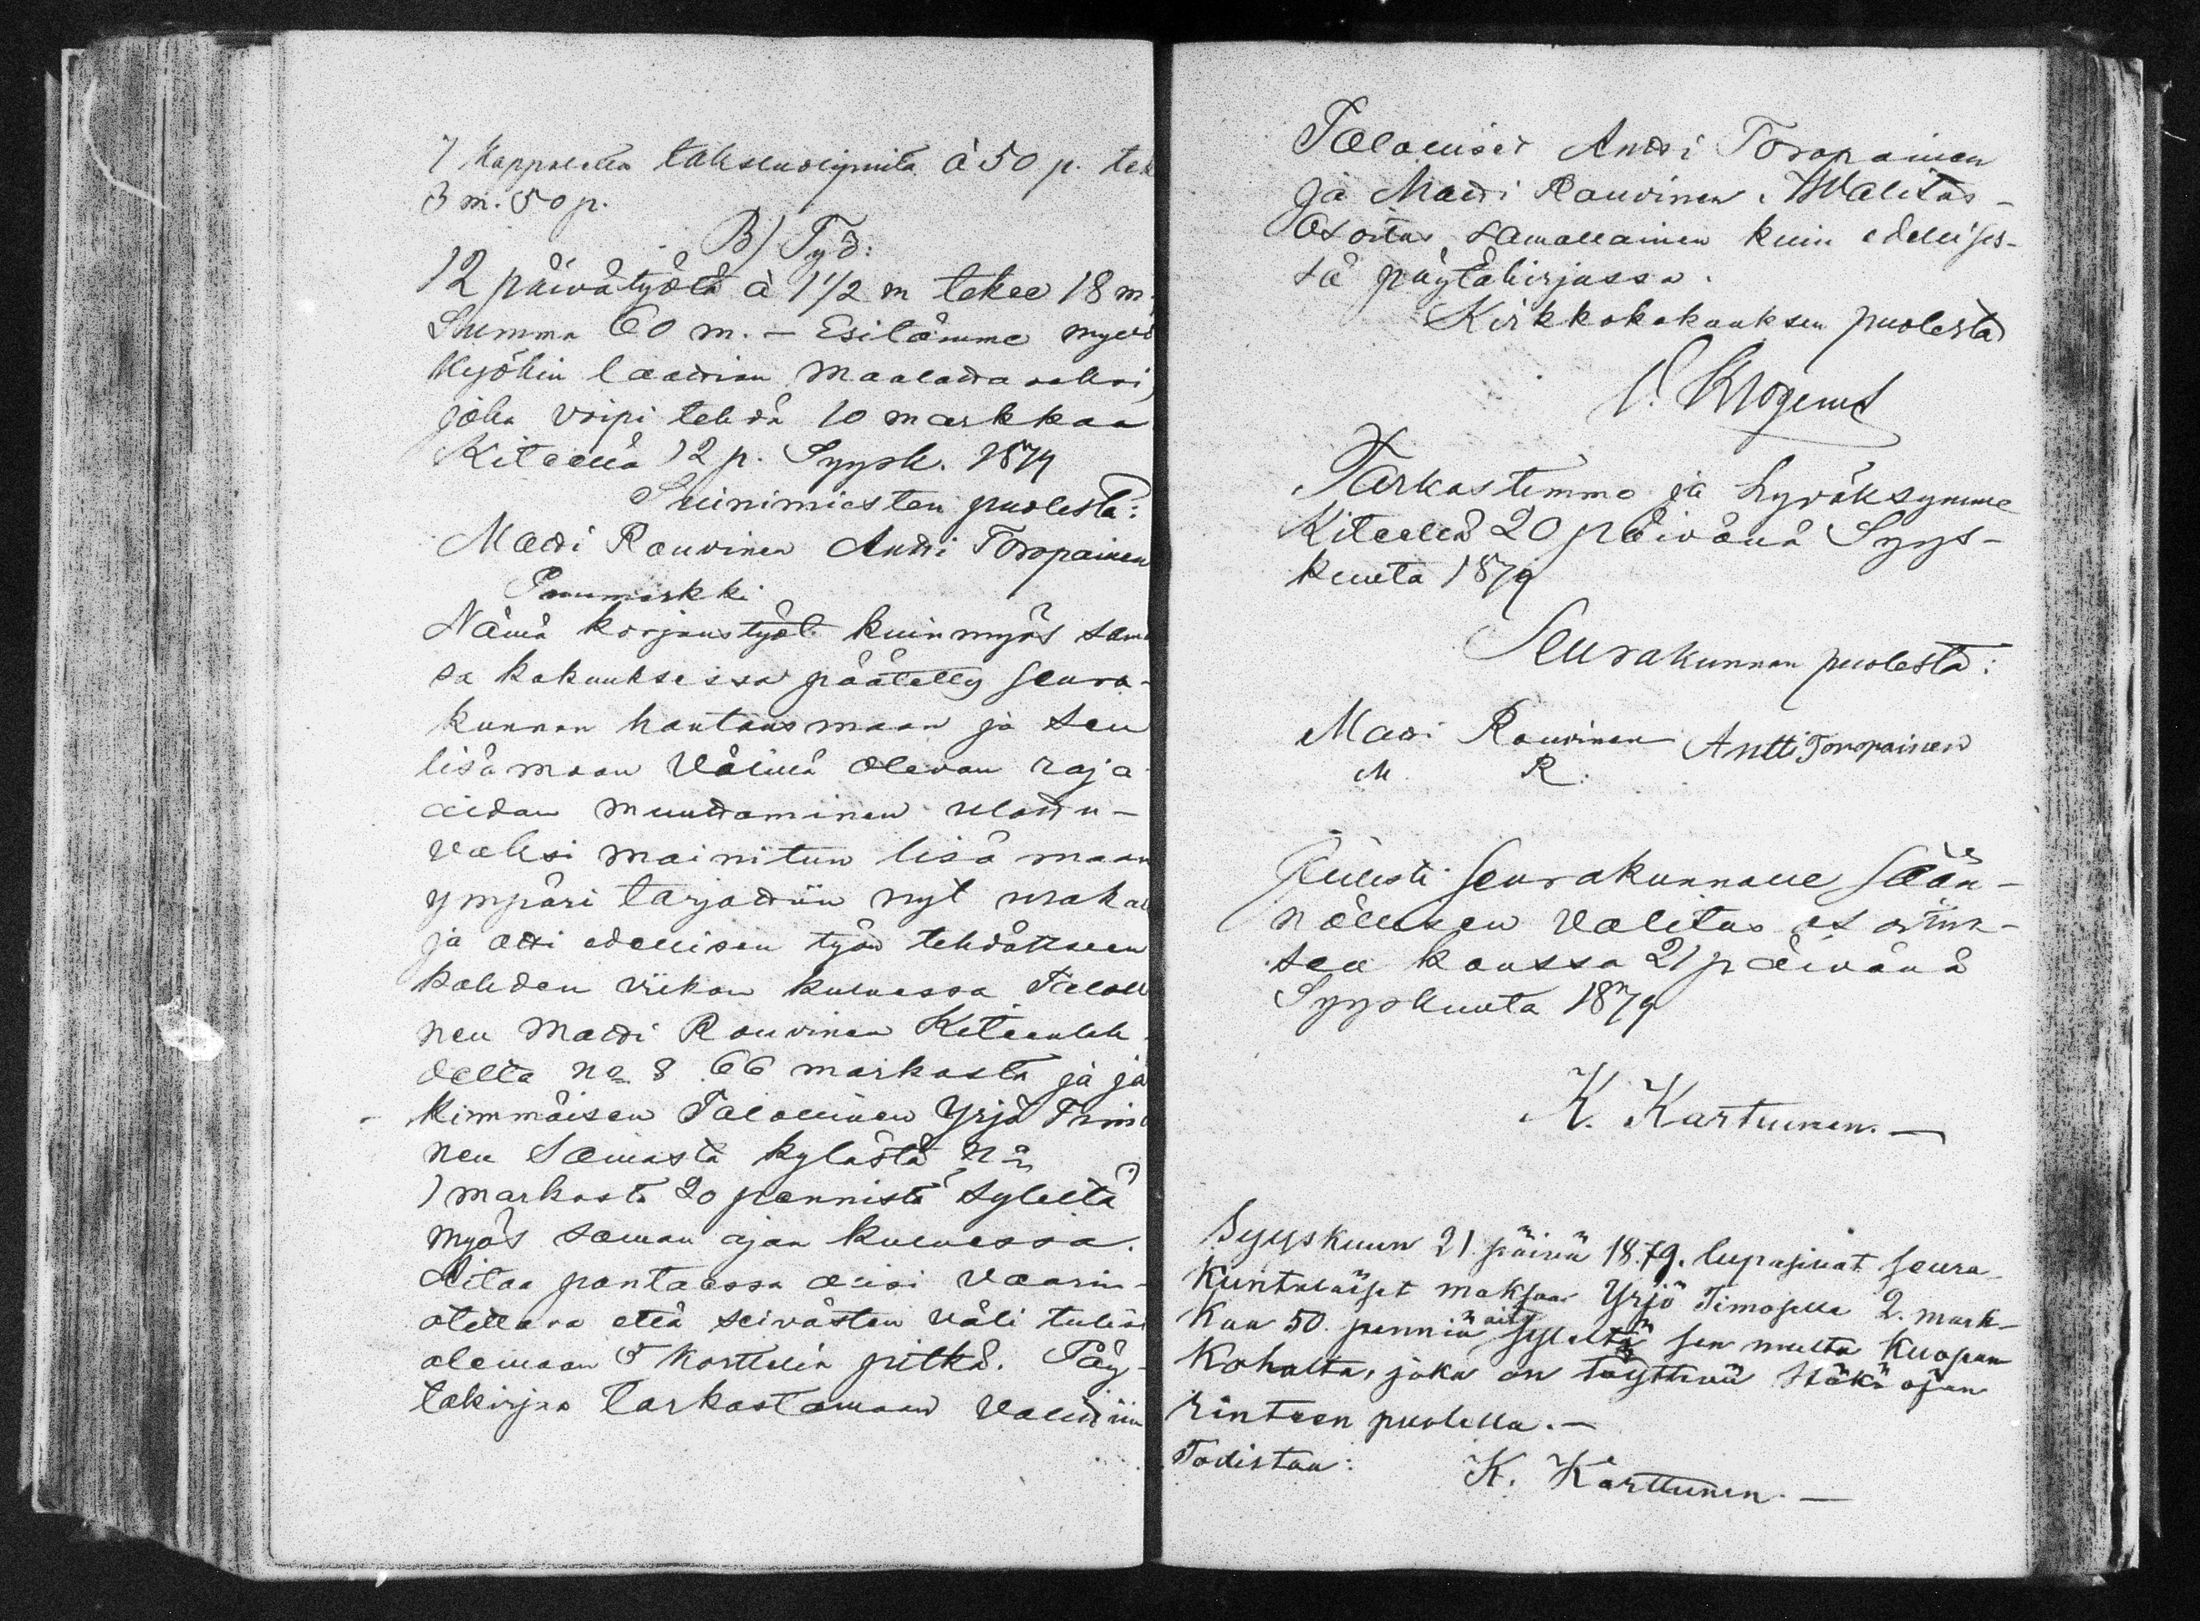 7 kappaletta à 50 p. tek
3 m. 50 p.
B) Työ:
12 päivätyötä à 1 1/2 m tekee 18 m.
Summa 60 m. — Esitämme myös
kyökin laattian maalattavaksi,
joka voipi tehdä 10 markkaa
Kiteellä 12 p. Syysk. 1879
Suinimiesten puolesta:
Matti Rouvinen Antti Toropainen
Puumerkki
Nämä korjaustyöt kuin myös sam
sa kokouksessa päätetty seura-
kunnan hautausmaan ja sen
lisämaan välillä olevan raja
aidan muuttaminen ulottu-
vaksi mainitun lisä maan
ympäri tarjottiin nyt urakal
ja otti edellisen työn tehdäkseen
kahden viikon kuluessa Talolli
nen Matti Rouvinen Kiteenlah
delta no 8 66 markasta ja jä
kimmäisen Talollinen Yrjö Timo
nen samasta kylästä no
1 markasta 20 pennistä syleltä
myös saman ajan kuluessa.
Aitaa pantaessa olisi vaarin-
otettava että seivästen väli tulisi
olemaan 5 korttelia pitkä. Pöy-
täkirjaa tarkastamaan valittiin
Talolliset Antti Toropainen
ja Matti Rouvinen. Walitus-
osoitus samallainen kuin edellises-
sä pöytäkirjassa.
Kirkkokokouksen puolesta
Krogerus
Tarkastimme ja hyväksymme
Kiteellä 20 päivänä Syys-
kuuta 1879
Seurakunnan puolesta:
Matti Rouvinen Antti Toropainen
M. R.
Julisti seurakunnalle sään-
nöllisen valitus osoituk-
sen kanssa 21 päivänä
Syyskuuta 1879
K. Karttunen. —
Syyskuun 21 päivä 1879. lupasivat seura-
kuntalaiset maksaa Yrjö Timoselle 2. mark-
kaa 50. penniä syleltä sen multa kuopan
kohalta, joka on täyttävä ojan
rinteen puolella. —
Todistaa:
K. Karttunen. —